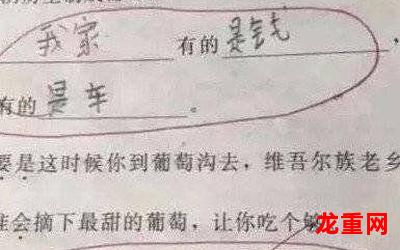 我家 有的 是钱，
有的 是车 。
要是这时候你到葡萄沟去，维吾尔族老乡
准会摘下最甜的葡萄，让你吃个够
龙重网